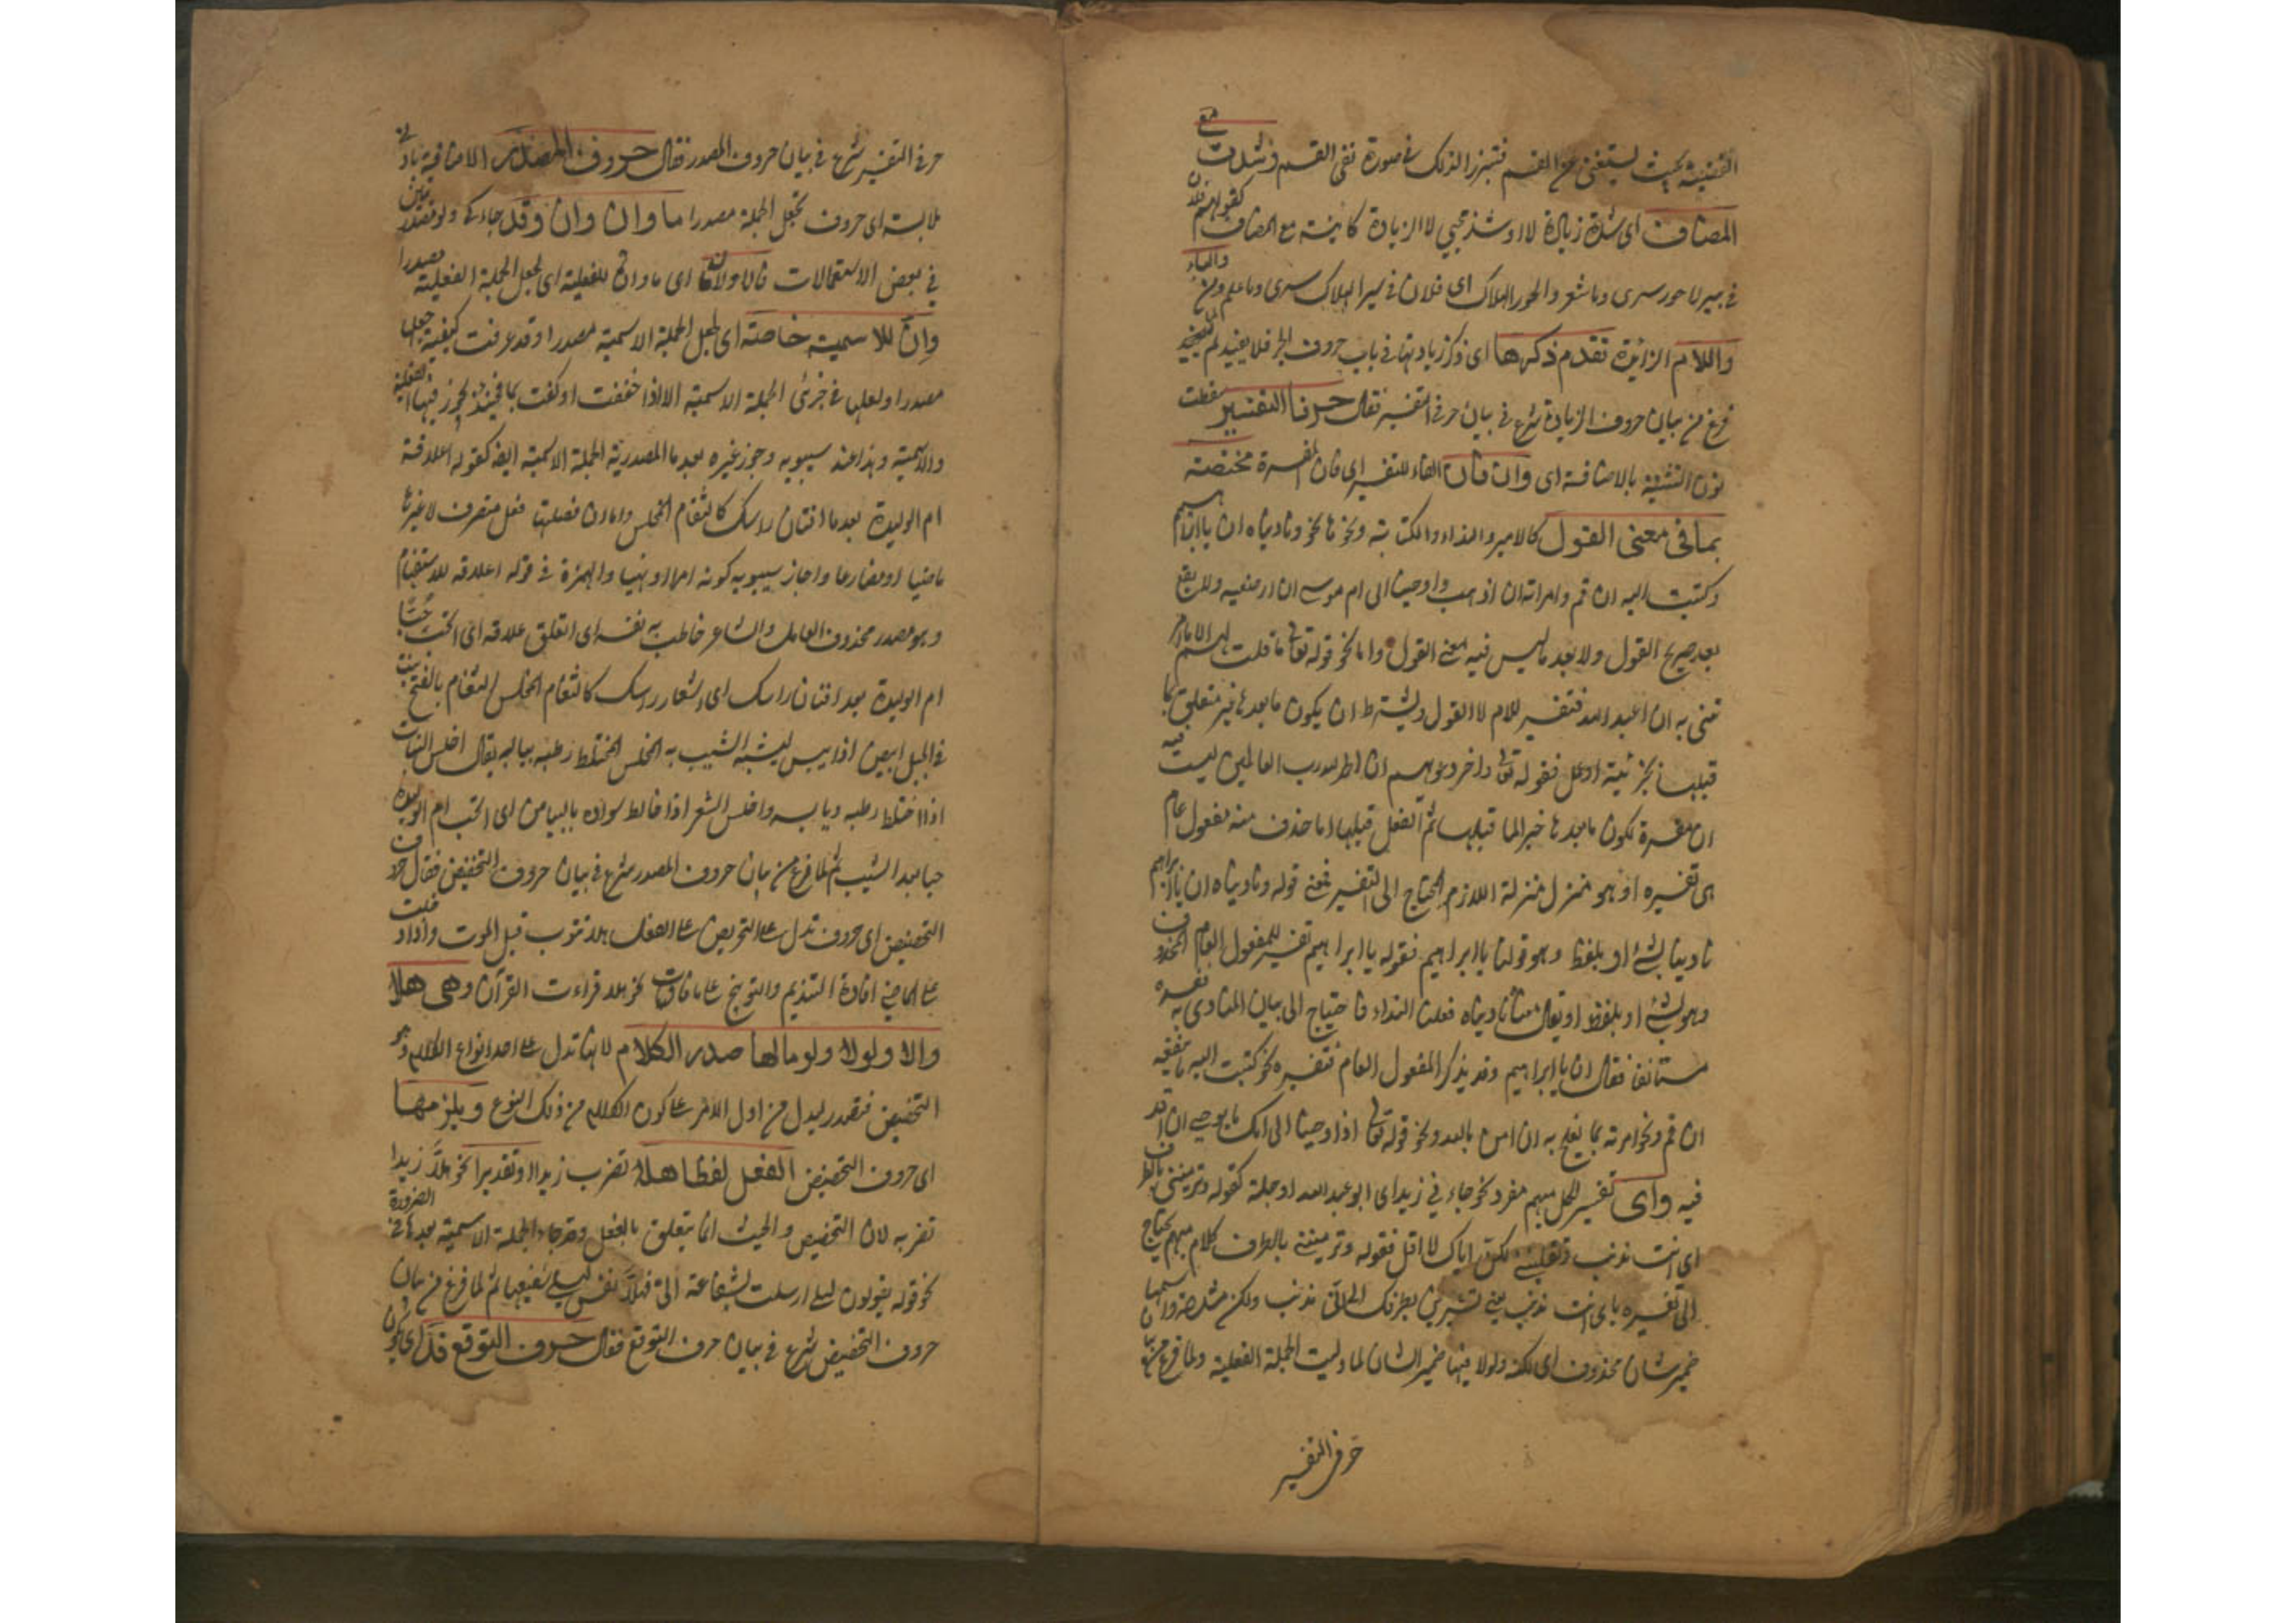 القضية بحيث يستغنى عن القسم فتبرز لذلك فى صورة نفى القسم وشذت مع
المضاف اى شذت زيادة لا وشذ تجئ لا الزيادة كاينة مع المضاف كقولهم
فى بير لا حور سرى وما شعر والحور الهلاك اى فلان فى بير الهلاك سرى وما علم ومن والباء
واللام الزائدة تقدم ذكرها اى ذكر زيادتها فى باب حروف الجر فلا نفيد
فرغ من بيان حروف الزيادة شرع فى بيان حرفى التفسير فقال حرفا التفسير سقطت
نون التثنية بالاضافة اى وان فان الفاء للتفسير اى فان المفسرة مختصة
بما فى معنى القول كالامر والنداء والكتابة ونحوها نحو وناديناه ان يا ابراهيم
وكتبت اليه ان قم وامرته ان اذهب واوحينا الى ام موسى ان ارضعيه ولا يقع
بعد صريح القول ولا بعد ما ليس فيه معنى القول واما نحو قوله تعالى ما قلت لهم الا ما امر
تنى به ان اعبدوا الله فتفسير للام لا القول ويشترط ان يكون ما بعدها غير متعلق بما
قبلها فقوله تعالى واخر دعويهم ان الحمد لله رب العالمين ليست فيه
ان مفسرة لكون ما بعدها خبرا لما قبلها ثم الفعل قبلها اما حذف منه مفعول عام
هى تفسيره او هو منزل منزلة اللازم المحتاج الى التفسير فمعنى قوله وناديناه ان يا ابراهيم
نادينا بشئ او بلفظ وهو قولنا يا ابراهيم فقوله يا ابراهيم تفسير للمفعول العام المحذوف
وهو بشئ او بلفظ او يقال معنا ناديناه فعلنا النداء فاحتاج الى بيان المنادى به
مستانفا فقال ان يا ابراهيم وقد يذكر المفعول العام فتفسره نحو كتبت اليه ما ينفعه
ان قم ونحو امرته بما يفلح به ان امن بالله ونحو قوله تعالى اذ اوحينا الى امك ما يوحى ان اقذ
فيه واى تفسير لكل مبهم مفرد نحو جاءنى زيد اى ابو عبد الله او جملة كقوله وترميننى بالطرف
اى انت مذنب وتقليننى لكن اياك لا اقلى فقوله وترميننى بالطرف كلام مبهم يحتاج
الى تفسيره باى انت مذنب يعنى تشيرين بطرفك الى انى مذنب ولكن مشددة واسمها
ضمير شان محذوف اى لكنه ولولا فيها ضمير الشان لما وليت الجملة الفعلية ولما فرغ من بيان
حرفى التفسير
حرفى التفسير شرع فى بيان حروف المصدر فقال حروف المصدر الاضافة
ملابسة اى حروف تجعل الجملة مصدرا ما وان وان وقد جاء كى ولو مصدريتين
فى بعض الاستعمالات فالاولان اى ما وان للفعلية اى لجعل الجملة الفعلية مصدرا
وان للاسمية خاصة اى لجعل الجملة الاسمية مصدرا وقد عرفت كيفية جعلها
مصدرا ولعلها فى جزئى الجملة الاسمية الا اذا خففت او كفت بما فحينئذ يجوز فيها الفعلية
والاسمية وهذا عند سيبويه وجوز غيره بعد ما المصدرية الجملة الاسمية ايضا كقوله اعلاقة
ام الوليدة بعد ما افنان راسك كالثغام المخلس واما ان فصلتها فعل متصرف لا غيرها
ماضيا او مضارعا واجاز سيبويه كونه امرا او نهيا والهمزة فى قوله اعلاقة للاستفهام
وهو مصدر محذوف العامل والشاعر خاطب به نفسه اى اتعلق علاقة اى اتحب حبا
ام الوليدة بعد افنان راسك اى اشعار راسك كالثغام المخلس الثغام بالفتح نبت
فى الجبل ابيض اذا يبس يشبه الشيب به المخلس المختلط رطبه بيابسه يقال اخلس النبات
اذا اختلط رطبه ويابسه واخلس الشعر اذا خالط سواده بالبياض اى اتحب ام الوليدة
حبا بعد الشيب ثم لما فرغ من بيان حروف المصدر شرع فى بيان حروف التحضيض فقال حروف
التحضيض اى حروف تدل على التحريض على الفعل هلا تتوب قبل الموت واذا دخلت
على الماضى افادة التنديم والتوبيخ على ما فات نحو هلا قراءت القرآن وهى هلا
والا ولولا ولوما لها صدر الكلام لانها تدل على احد انواع الكلام وهو
التحضيض فتصدر ليدل من اول الامر على كون الكلام من ذلك النوع ويلزمها
اى حروف التحضيض الفعل لفظا هلا تضرب زيدا او تقديرا نحو هلا زيدا
تضربه لان التحضيض والحث انما يتعلق بالفعل وقد جاء الجملة الاسمية بعدها فى الضرورة
نحو قوله يقولون ليلى ارسلت بشفاعة الى فهلا نفس ليلى شفيعها ثم لما فرغ من بيان
حروف التحضيض شرع فى بيان حرف التوقع فقال حرف التوقع قد اى يكون